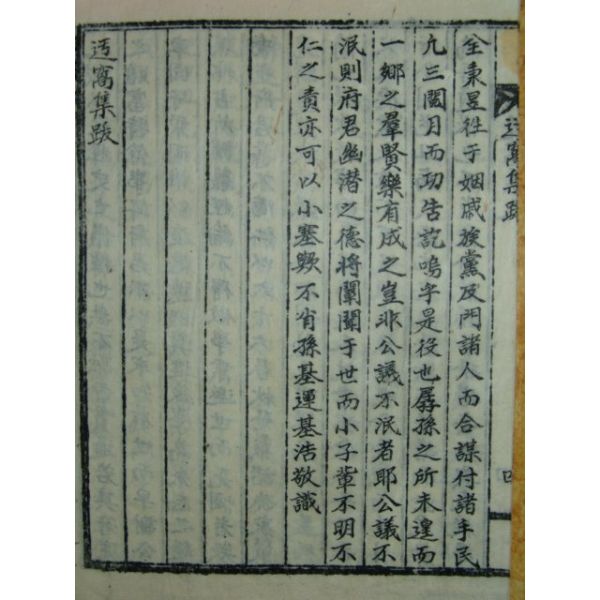 迃窩集跋
四
全秉昱徃于姻戚族黨及門諸人而合謀付諸手民
九三閱月而功告訖嗚乎是役也孱孫之所未遑而
一鄉之羣賢樂有成之豈非公議不泯者耶公議不
泯則府君幽潜之德將闡闢于世而小子輩不明不
仁之責亦可以小塞歟不肖孫基運基浩敬識
迃窩集跋